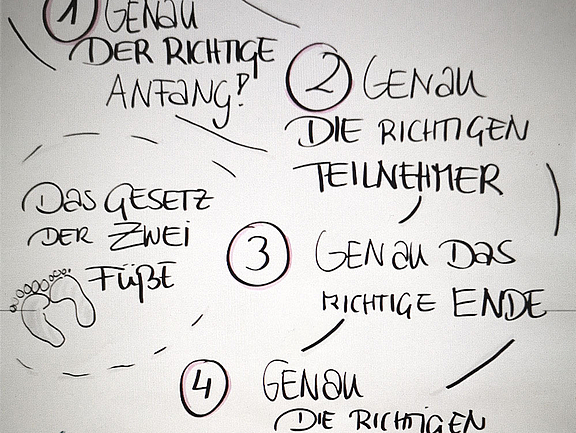 1 GENAU
DER RICHTIGE
ANFANG!
2 GENAU
DIE RICHTIGEN
TEILNEHMER
DAS GESETZ
DER ZWEI
FÜßE
3 GENAU DAS
RICHTIGE ENDE
4 GENAU
DIE RICHTIGEN